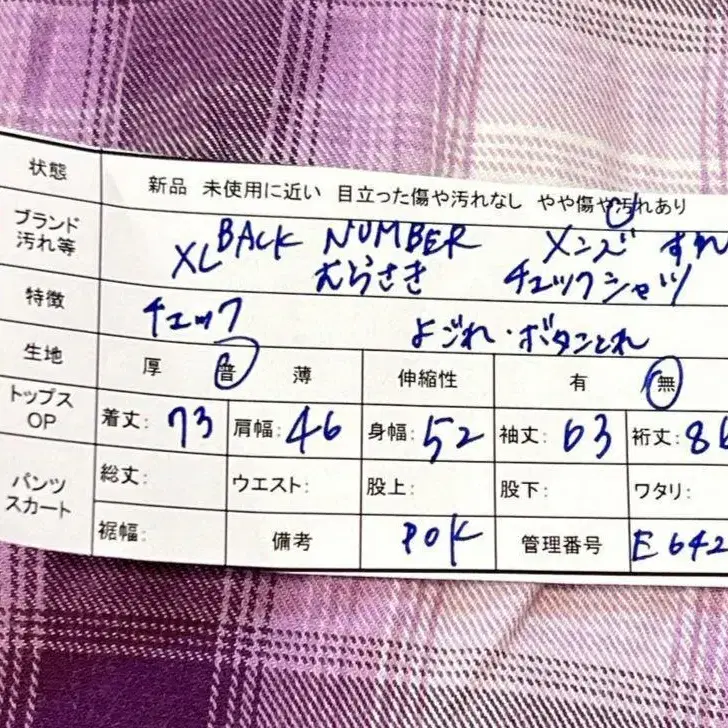 状態 新品 未使用に近い 目立った傷や汚れなし やや傷や汚れあり
ブランド 汚れ等 BACK NUMBER メンズ すれ
XL むらさき チェックシャツ
特徴 チェック よごれ・ボタンとれ
生地 厚 普 薄 伸縮性 有 無
トップス OP 着丈: 73 肩幅: 46 身幅: 52 袖丈: 63 裄丈: 86
パンツ スカート 総丈: ウエスト: 股上: 股下: ワタリ:
裾幅: 備考 POK 管理番号 E642